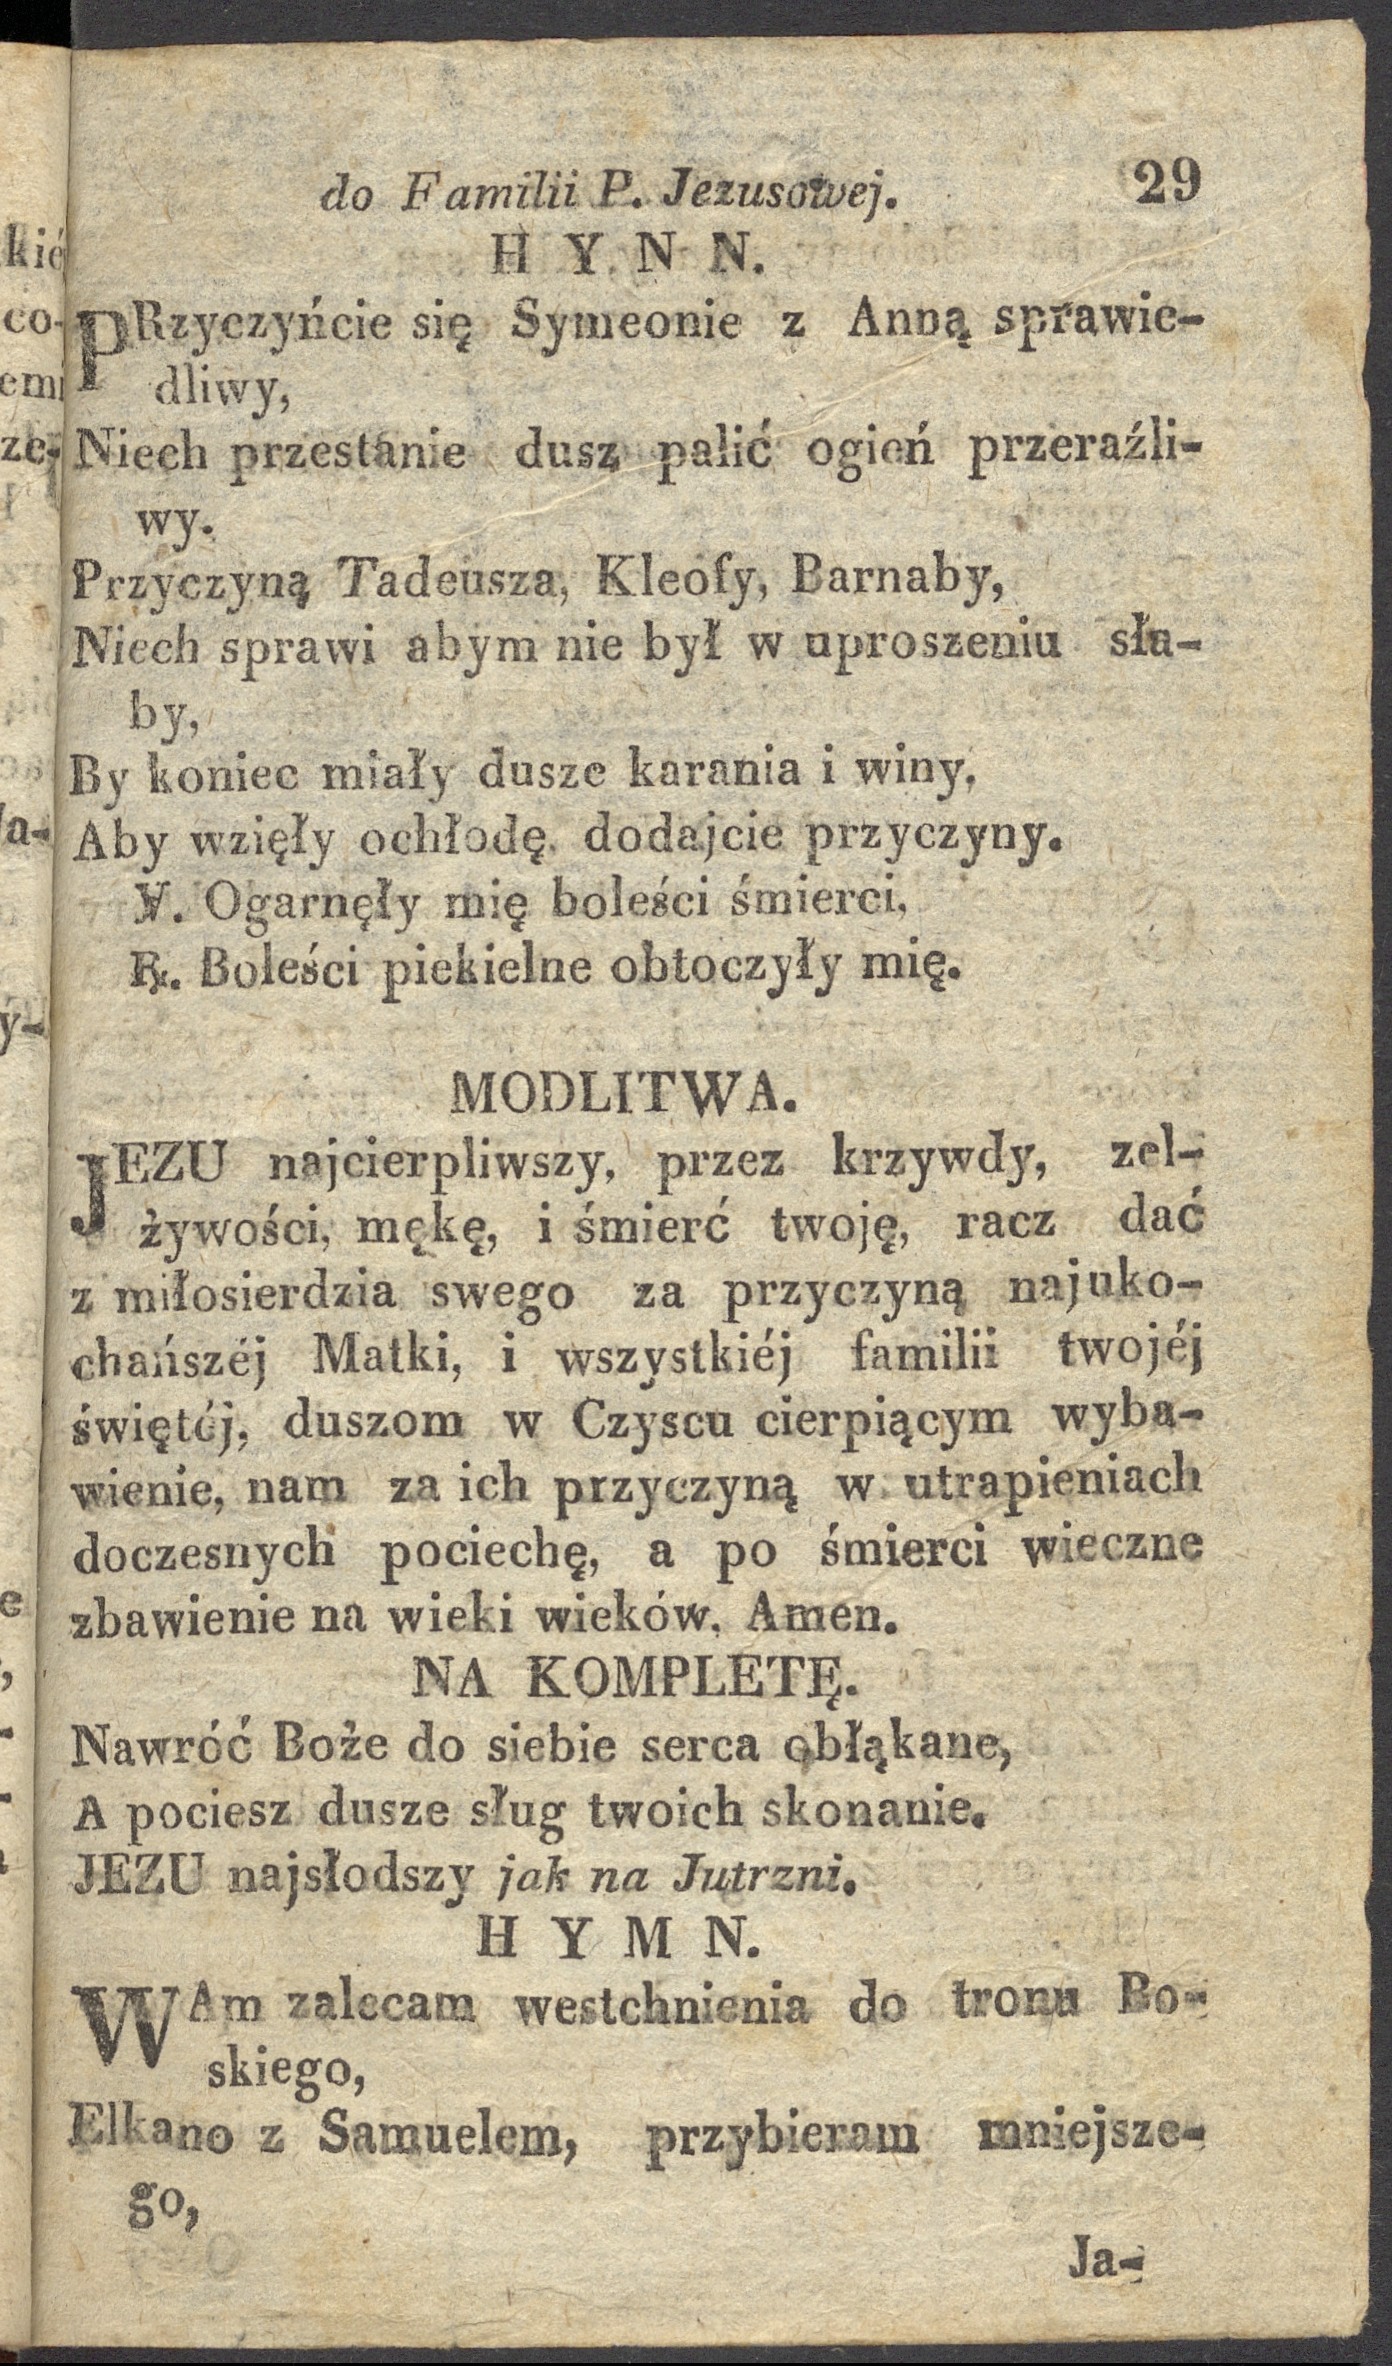 do Familii P. Jezusowej. 29
H Y N N.
PRzyczyńcie się Symeonie z Anną sprawie-
dliwy,
Niech przestanie dusz palić ogień przeraźli-
wy.
Przyczyną Tadeusza, Kleofy, Barnaby,
Niech sprawi abym nie był w uproszeniu sła-
by,
By koniec miały dusze karania i winy,
Aby wzięły ochłodę, dodajcie przyczyny.
℣. Ogarnęły mię boleści śmierci,
℟. Boleści piekielne obtoczyły mię.
MODLITWA.
JEZU najcierpliwszy, przez krzywdy, zel-
żywości, mękę, i śmierć twoję, racz dać
z miłosierdzia swego za przyczyną najuko-
chańszéj Matki, i wszystkiéj familii twojéj
świętéj, duszom w Czyscu cierpiącym wyba-
wienie, nam za ich przyczyną w utrapieniach
doczesnych pociechę, a po śmierci wieczne
zbawienie na wieki wieków. Amen.
NA KOMPLETĘ.
Nawróć Boże do siebie serca obłąkane,
A pociesz dusze sług twoich skonanie.
JEZU najsłodszy jak na Jutrzni.
H Y M N.
WAm zalecam westchnienia do tronu Bo-
skiego,
Elkano z Samuelem, przybieram mniejsze-
go,
Ja-